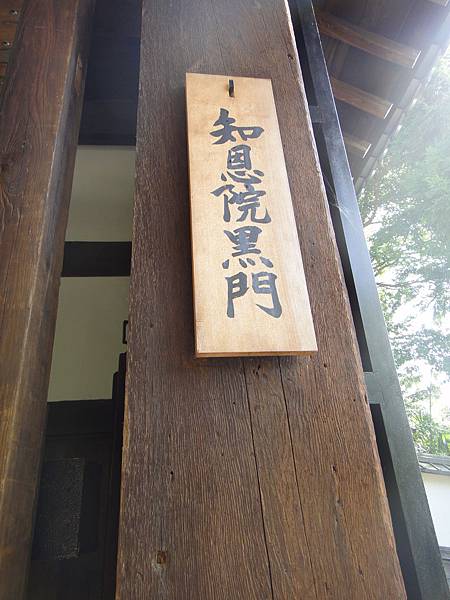 知恩院黒門